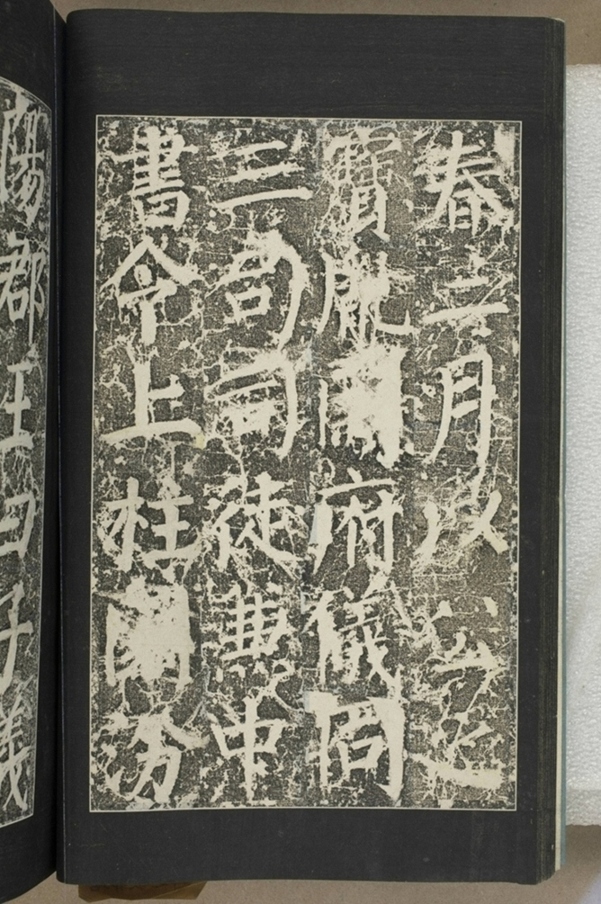 春二月以公之
寶胤開府儀同
三司司徒兼中
書令上柱國汾
陽郡王曰子儀